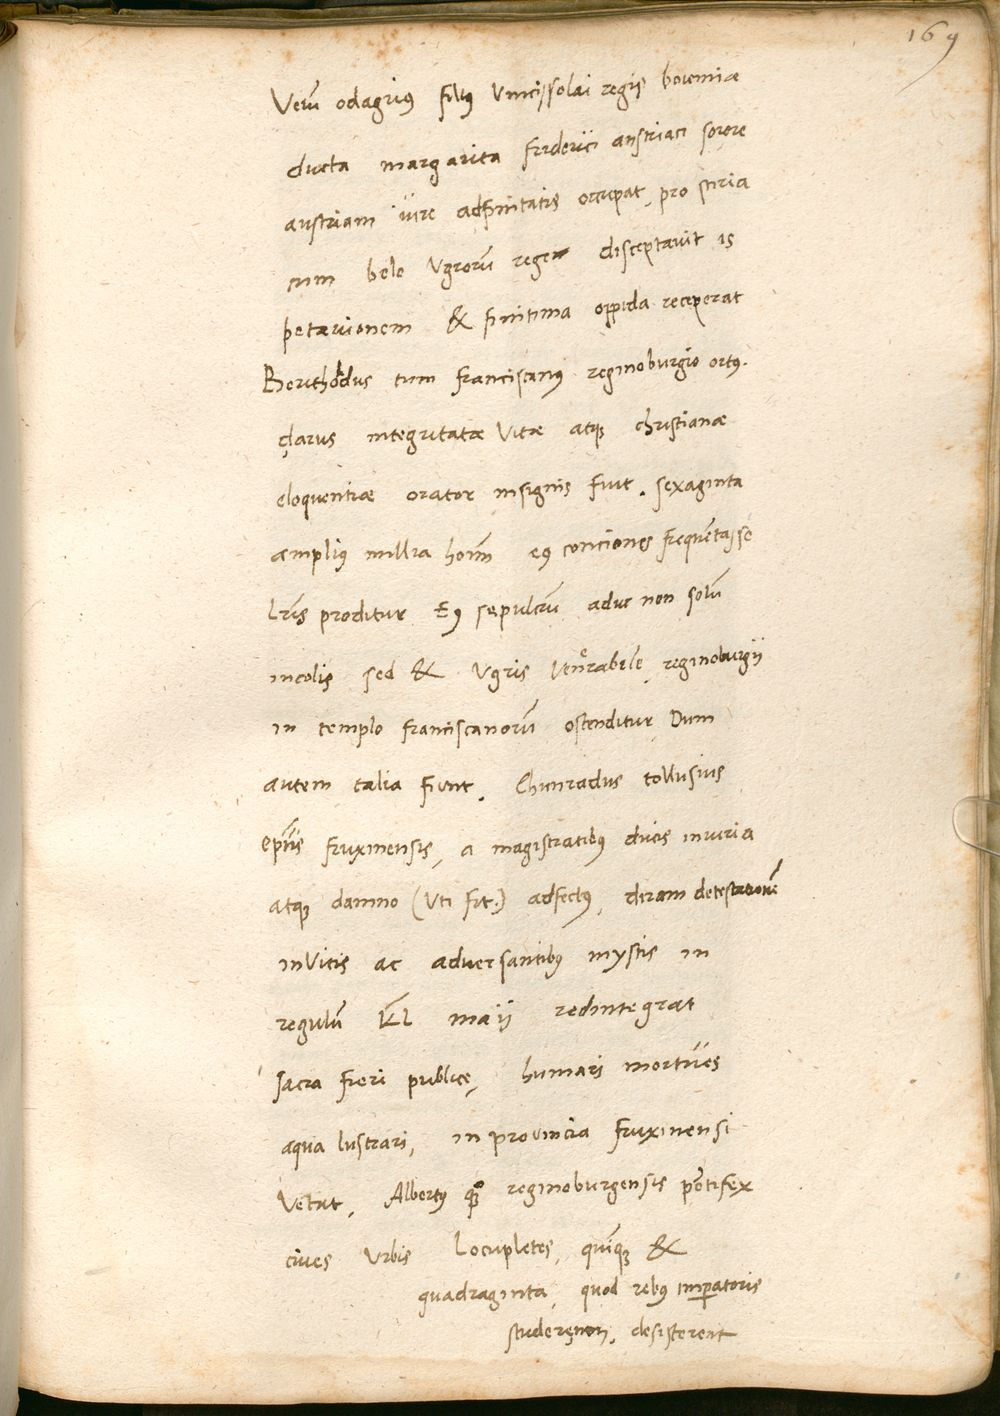 169
Verũ odagrius filius Vincissolai regis boiemiæ
ducta margarita friderici austriaci sorore
austriam iure adfinitatis occupat, pro stiria
cum bela Vgrorũ rege disceptauit is
petauionem & finitima oppida receperat
Berithodus tum franciscanus reginoburgio ortus.
clarus integritatæ Vitæ atque christianæ
eloquentiæ orator insignis fuit. sexaginta
amplius millia hoĩm eius conciones frequẽtasse
lr̃is proditur Eius sepulcrũ aduc non solũ
incolis sed & Vgris Venerabile, reginoburgii
in templo franciscanorũ ostenditur Dum
autem talia fiunt. Chunradus tollusius
ep̃us fruxinensis, a magistratibus ducis iniuria
atque damno (Vti fit.) adfectus, diram detestationẽ
inVitis ac aduersantibus mystis in
regulũ Kl̃ maii redintegrat
sacra fieri publice, humari mortuos
aqua lustrari, in prouincia fruxinensi
Vetat, Albertus quoque reginoburgensis põtifex
ciues Vrbis Locupletes, quĩque &
quadraginta, quod rebus imperatoris
studere non, desisterent